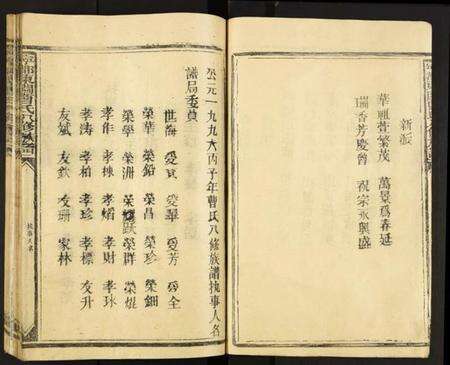 新派
華軀萱繁茂 萬景爲春延
瑞香芳慶曾 祝宗永興盛
公元一九九六丙子年曹氏八修族譜執事人名
譜局委員
世海 愛民 愛華 愛芳 爲全
榮華 榮鉛 榮昌 榮珍 榮鈿
榮學 榮洲 榮躍 榮群 榮焜
孝作 孝棟 孝熠 孝財 孝球
孝濤 孝柏 孝珍 孝標 友升
友斌 友欽 友珊 家林
執事人名